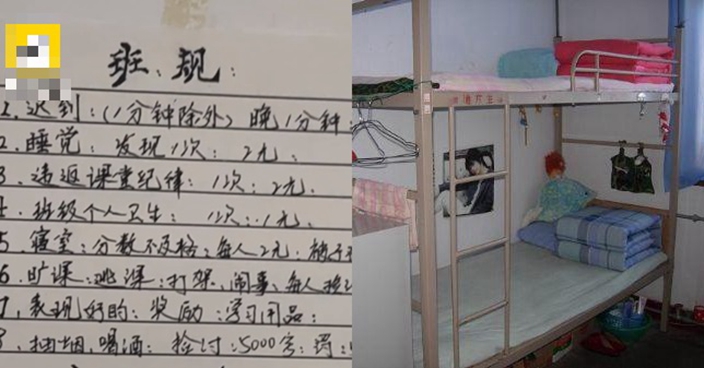 班、规:
1.迟到:(1分钟除外)晚1分钟:
2.睡觉:发现1次:2元、
3.违返课堂纪律:1次:2元.
4.班级个人卫生:1次:1元、
5.寝室:分数不及格:每人2元.
6.旷课、逃课:打架、闹事、每人
7.表现好的:奖励:学习用品:
8.抽烟、喝酒:检讨:5000字:罚: